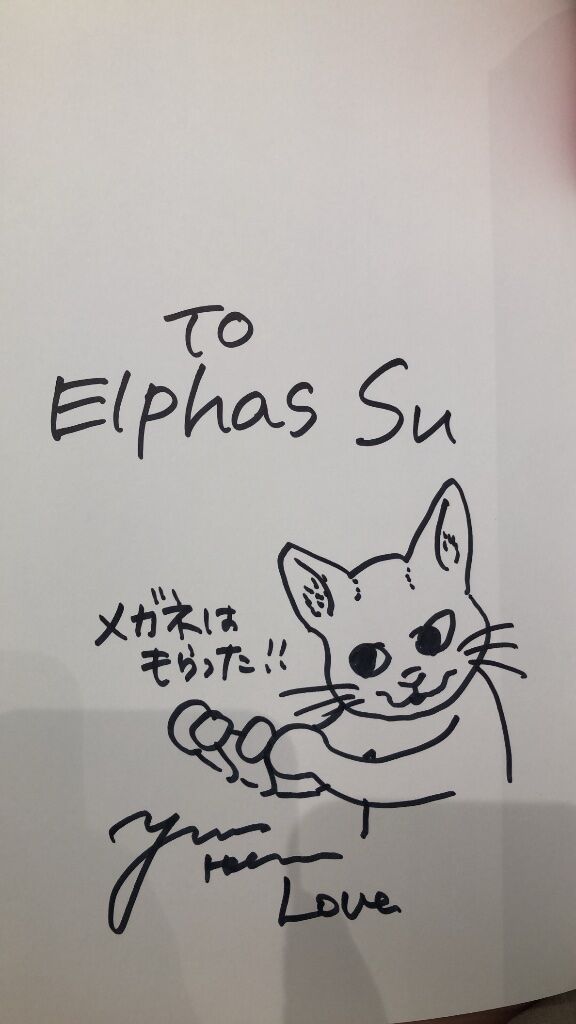 To
Elphas Su
メガネは
もらった!!
Love